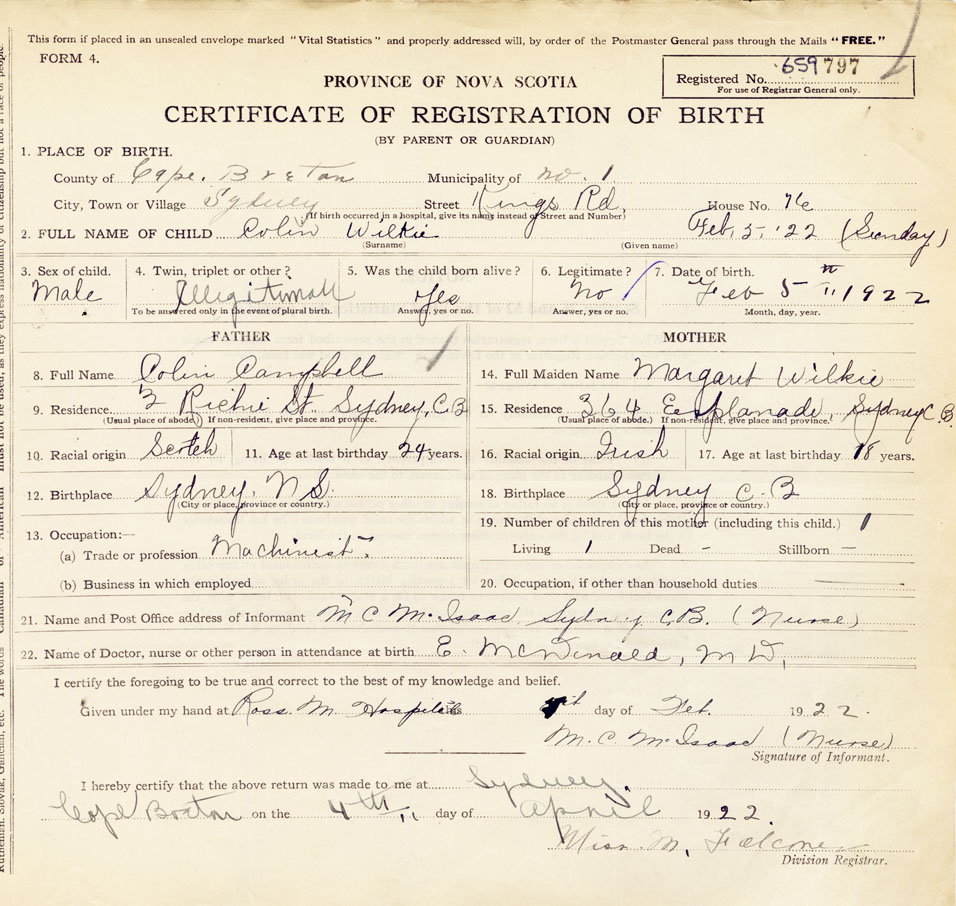 This form if placed in an unsealed envelope marked "Vital Statistics" and properly addressed will, by order of the Postmaster General pass through the Mails "FREE."
FORM 4.
Registered No. 659797
For use of Registrar General only.
PROVINCE OF NOVA SCOTIA
CERTIFICATE OF REGISTRATION OF BIRTH
(BY PARENT OR GUARDIAN)
1. PLACE OF BIRTH.
County of Cape. Breton Municipality of no. 1
City, Town or Village Sydney Street Kings Rd, House No. 76
(If birth occurred in a hospital, give its name instead of Street and Number)
2. FULL NAME OF CHILD Colin Wilkie Feb, 5, '22 (Sunday)
(Surname) (Given name)
3. Sex of child. 4. Twin, triplet or other? 5. Was the child born alive? 6. Legitimate? 7. Date of birth.
Male Yes No Feb 5th 1922
To be answered only in the event of plural birth. Answer, yes or no. Answer, yes or no. Month, day, year.
FATHER MOTHER
8. Full Name Colin Campbell 14. Full Maiden Name Margaret Wilkie
9. Residence Richie St. Sydney, C.B 15. Residence 364 Esplanade, Sydney C.B.
(Usual place of abode.) If non-resident, give place and province. (Usual place of abode.) If non-resident, give place and province.
10. Racial origin Scotch 11. Age at last birthday 24 years. 16. Racial origin Irish 17. Age at last birthday 18 years.
12. Birthplace Sydney, N S. 18. Birthplace Sydney C. B
(City or place, province or country.) (City or place, province or country.)
13. Occupation:— 19. Number of children of this mother (including this child.) 1
(a) Trade or profession Machinist Living 1 Dead - Stillborn —
(b) Business in which employed 20. Occupation, if other than household duties
21. Name and Post Office address of Informant M C McIsaac Sydney C.B. (Nurse)
22. Name of Doctor, nurse or other person in attendance at birth E. McDonald, M D,
I certify the foregoing to be true and correct to the best of my knowledge and belief.
Given under my hand at Ross. M. Hospital day of Feb. 1922.
M. C. McIsaac (Nurse)
Signature of Informant.
I hereby certify that the above return was made to me at Sydney.
Cape Breton on the 4th day of April 1922.
Miss. M. Falconer
Division Registrar.